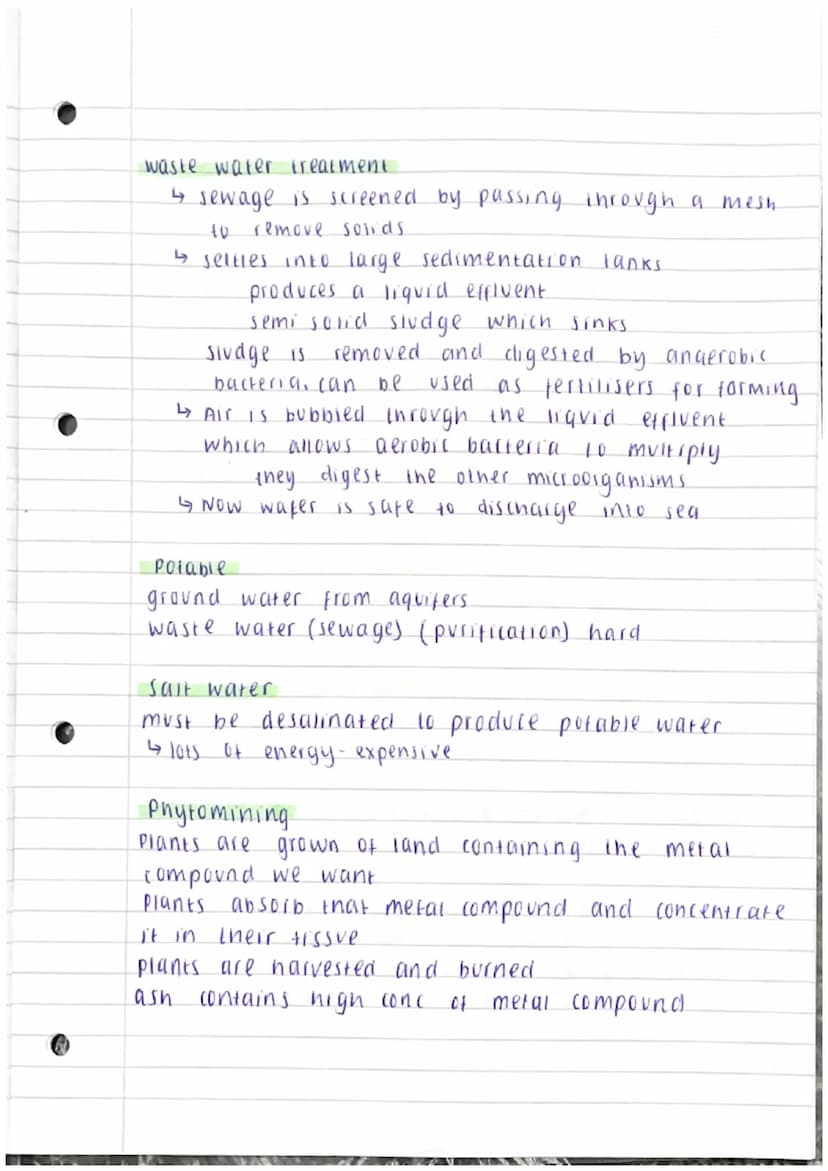 waste water treatment
↳ sewage is screened by passing through a mesh
to remove solids
↳ settles into large sedimentation tanks
produces a liquid effluent
semi solid sludge which sinks
sludge is removed and digested by anaerobic
bacteria. can be used as fertilisers for farming
↳ Air is bubbled through the liquid effluent
which allows aerobic bacteria to multiply
they digest the other microorganisms
↳ Now water is safe to discharge into sea
Potable
ground water from aquifers
waste water (sewage) (purification) hard
Salt water
must be desalinated to produce potable water
↳ lots of energy - expensive
Phytomining
Plants are grown of land containing the metal
compound we want
Plants absorb that metal compound and concentrate
it in their tissue
plants are harvested and burned
ash contains high conc of metal compound